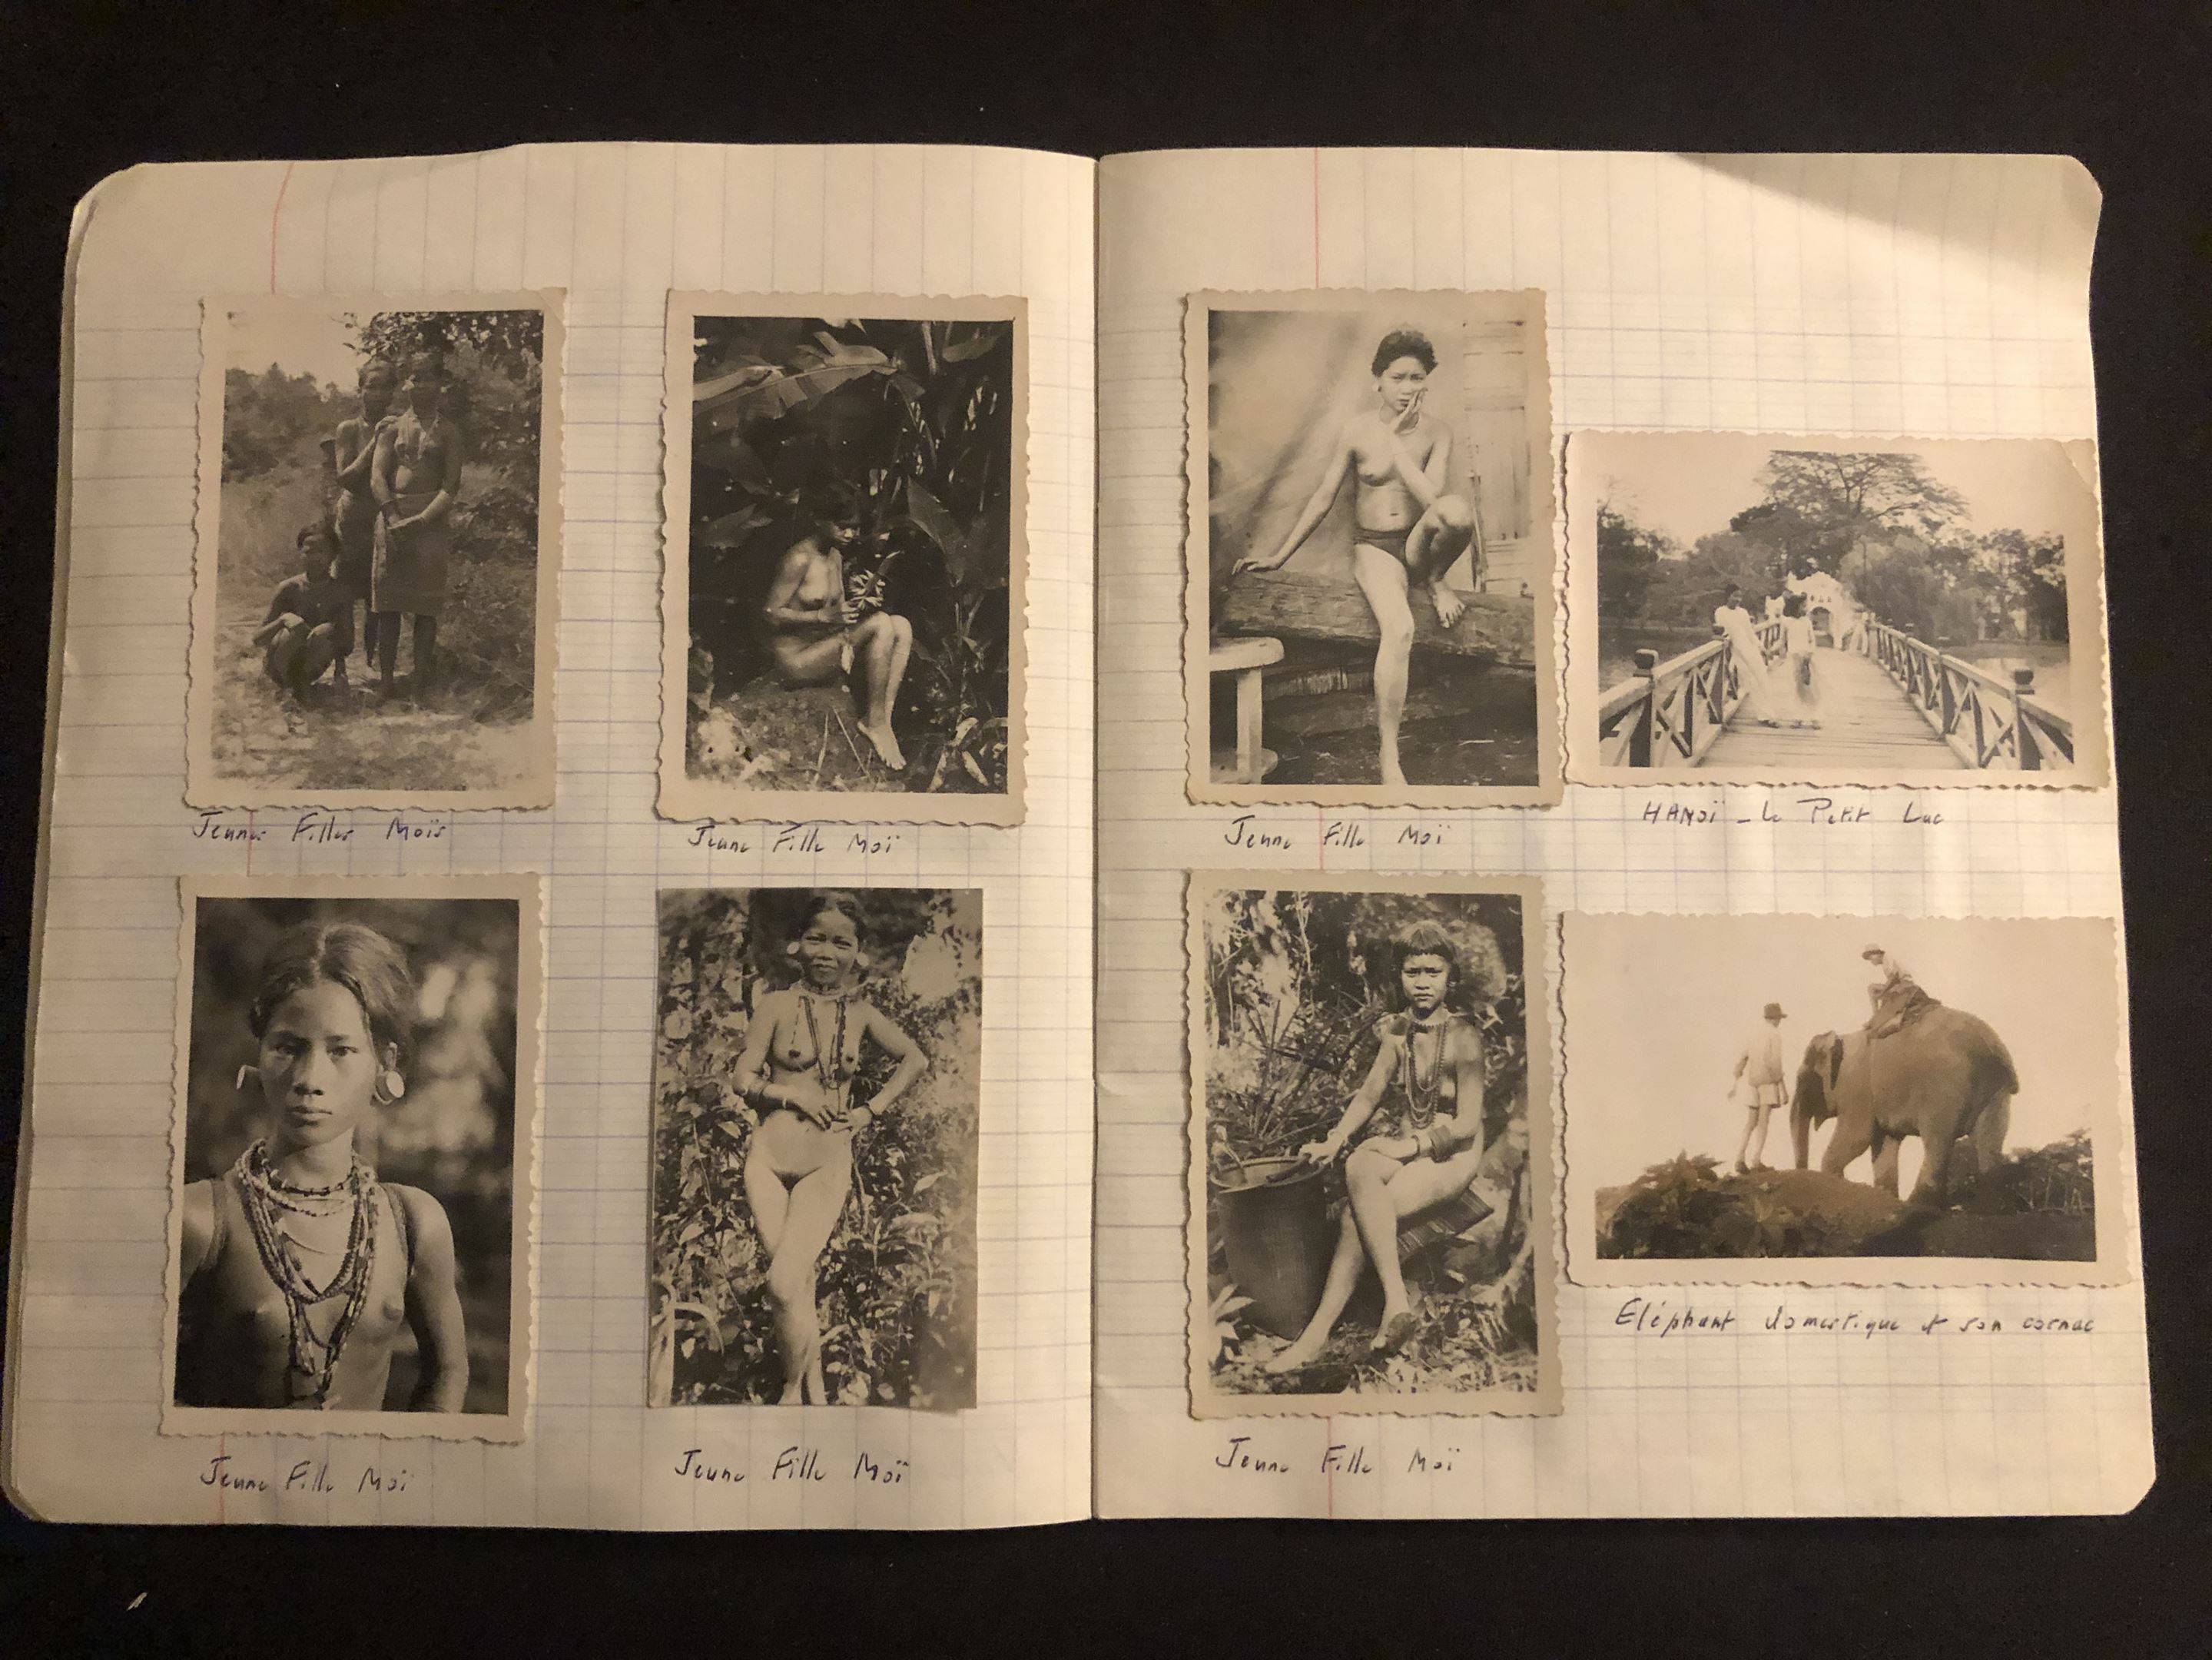 Jeunes Filles Moïs
Jeune Fille Moï
Jeune Fille Moï
Jeune Fille Moï
Jeune Fille Moï
HANOÏ - Le Petit Lac
Jeune Fille Moï
Eléphant domestique et son cornac